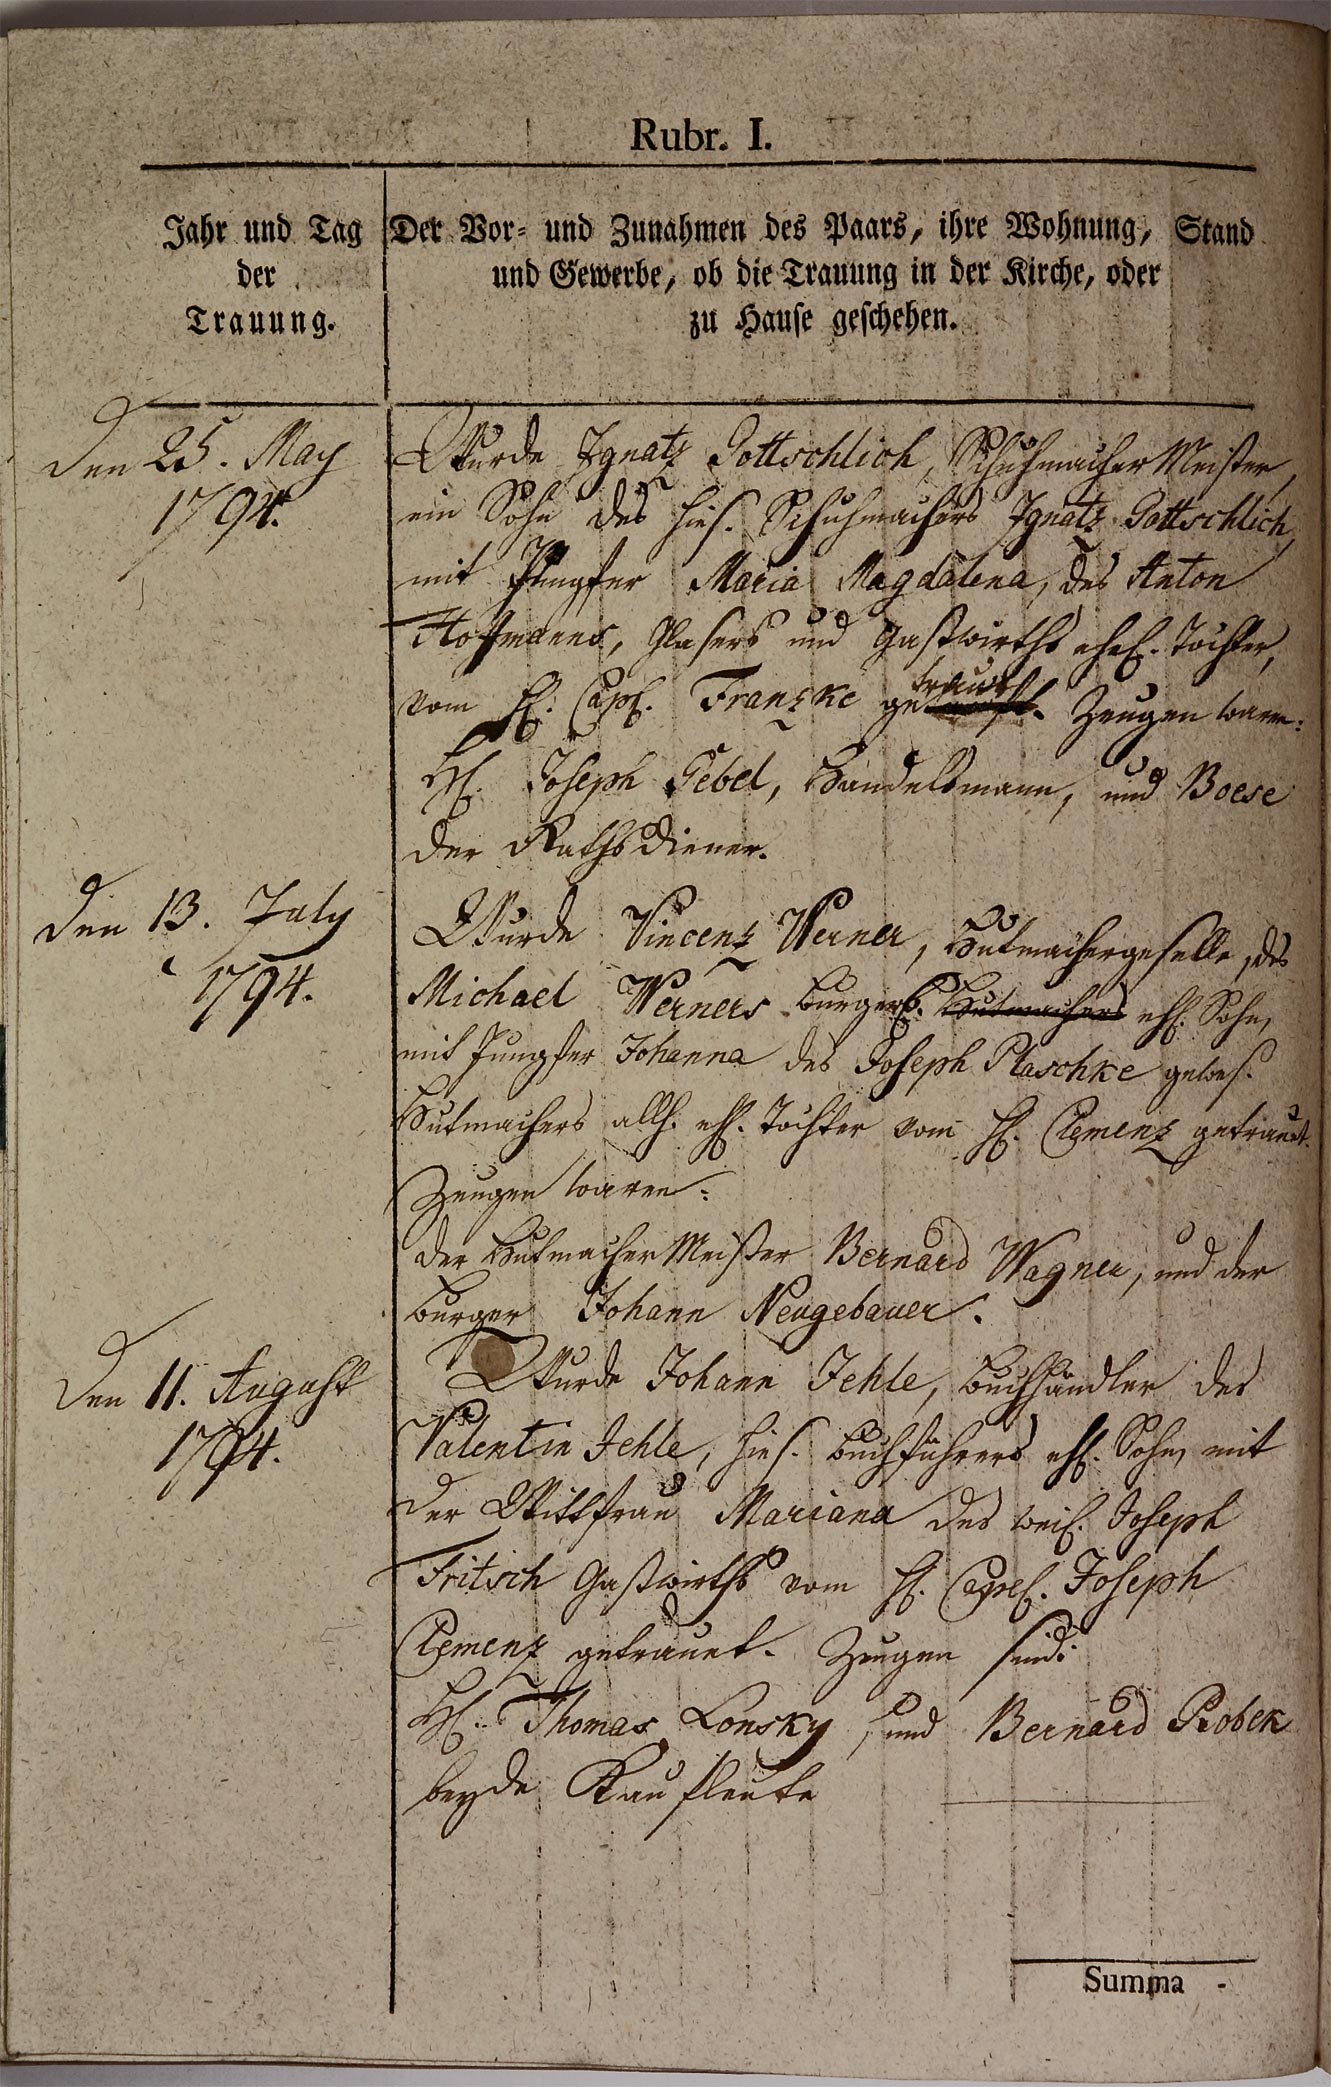 Rubr. I.
Jahr und Tag
der
Trauung.
Der Vor- und Zunahmen des Paars, ihre Wohnung, Stand
und Gewerbe, ob die Trauung in der Kirche, oder
zu Hause geschehen.
Den 25. May
1794.
Wurde Ignatz Gottschlich, Schuhmacher Meister,
ein Sohn des hies. Schuhmachers Ignatz Gottschlich,
mit Jungfer Maria Magdalena, des Anton
Hoffmanns, Glasers und Gastwirths ehel. Tochter,
vom H. Capl. Franzke getraut. Zeugen waren:
H. Joseph Gebel, Handelsmann, und Boese
der Rathsdiener.
Den 13. July
1794.
Wurde Vincenz Werner, Hutmachergeselle, des
Michael Werners burgerl. Hutmachers ehl. Sohn,
mit Jungfer Johanna des Joseph Plaschke gewes.
Hutmachers allh. ehl. Tochter vom H. Clemenz getrauet.
Zeugen waren:
der Hutmacher Meister Bernard Wagner, und der
Burger Johann Neugebauer.
Den 11. August
1794.
Wurde Johann Jehle, Buchhändler des
Valentin Jehle, hies. Buchführers ehl. Sohn, mit
der Wittfrau Mariana des weil. Joseph
Fritsch Gastwirths vom H. Capel. Joseph
Clemenz getrauet. Zeugen sind:
H. Thomas Lonsky, und Bernard Probek
beyde Kaufleute
Summa -